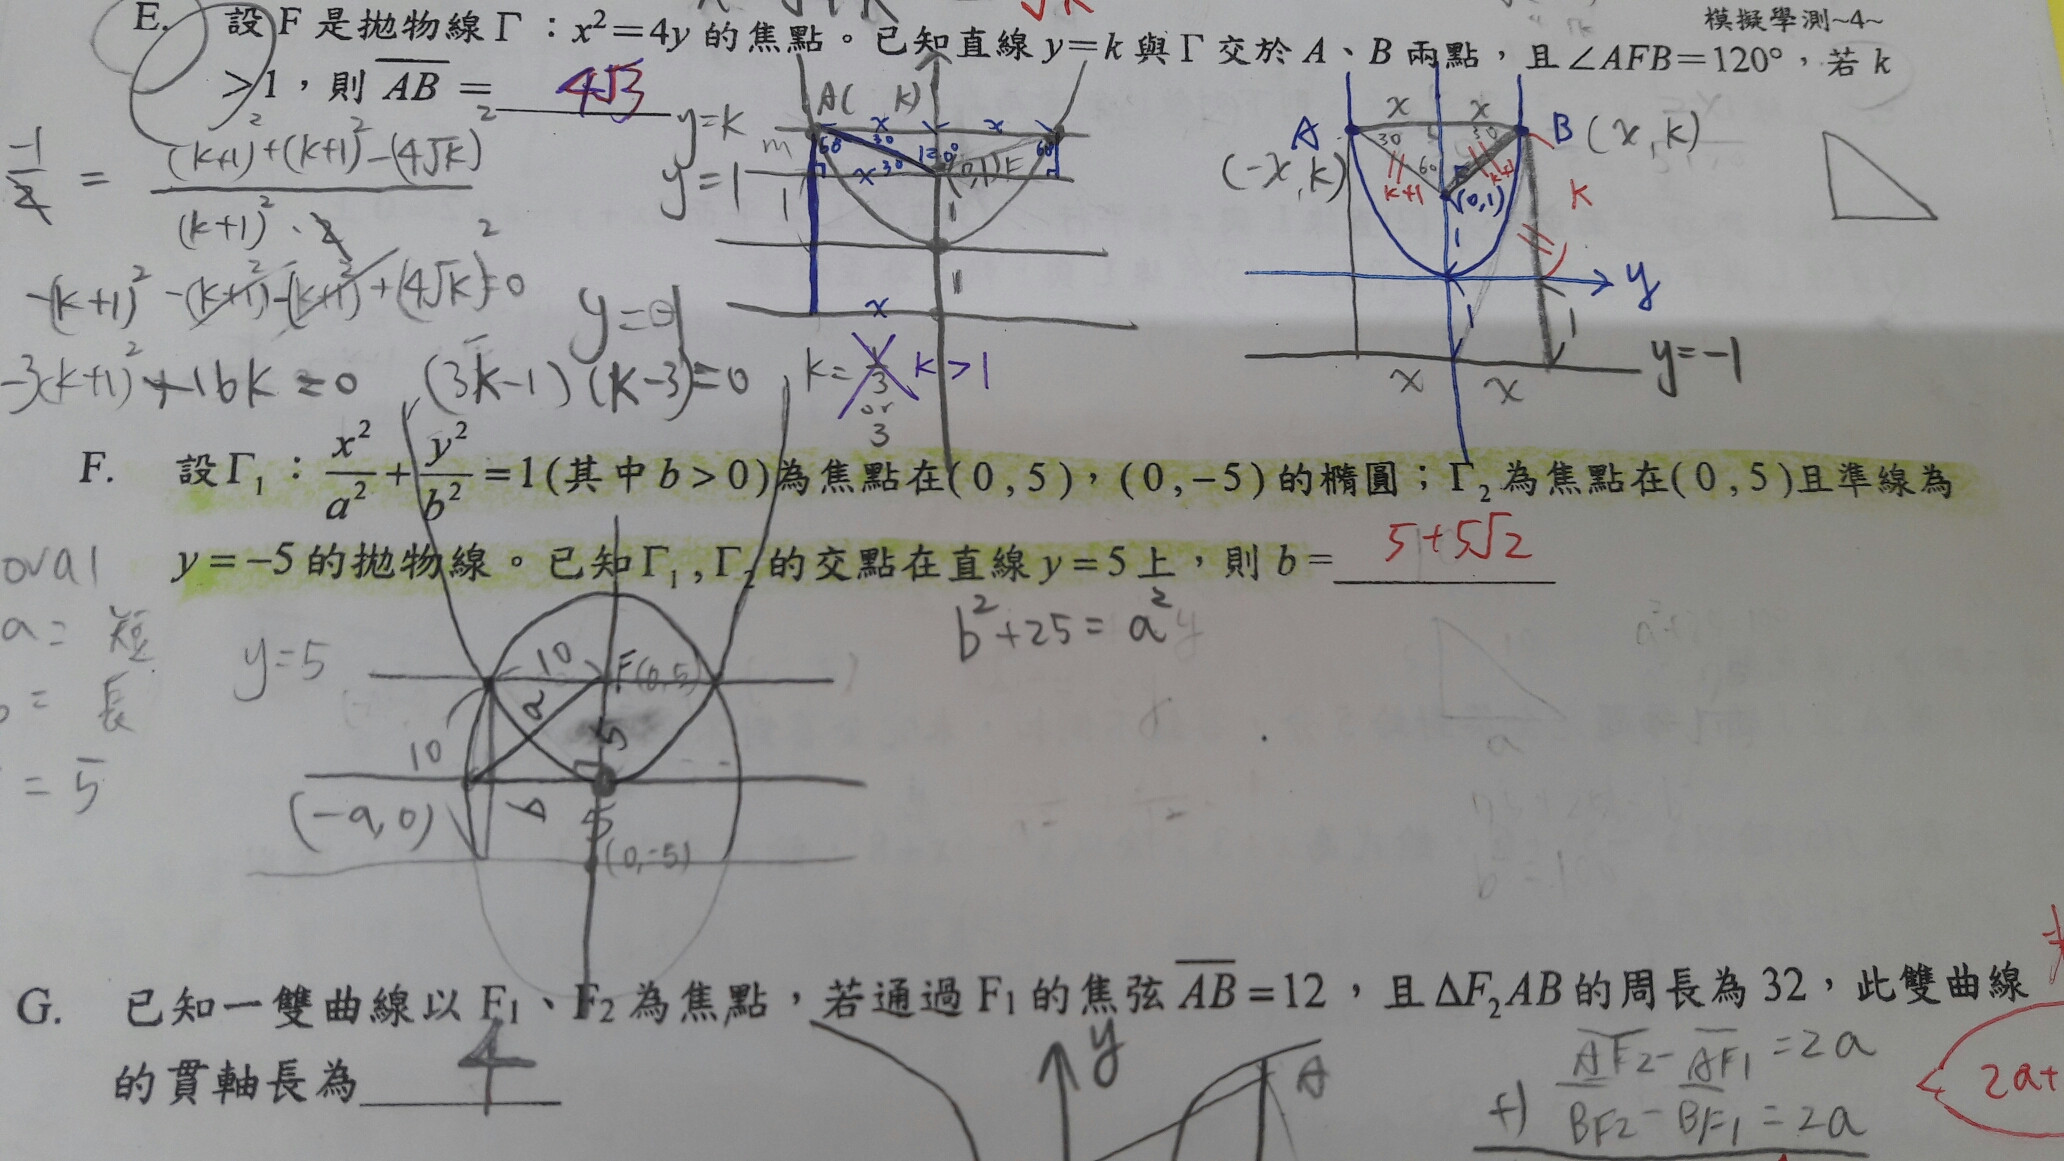 模擬學測~4~
E. 設 F 是拋物線 Γ：x²=4y 的焦點。已知直線 y=k 與 Γ 交於 A、B 兩點，且 ∠AFB=120°，若 k
>1，則 AB = 4√3
-1/2 = (k+1)²+(k+1)²-(4√k)² / (k+1)²·2
-(k+1)²-(k+1)²-(k+1)²+(4√k)²=0
-3(k+1)²+16k=0 (3k-1)(k-3)=0 k= 1/3 or 3 k>1
y=k
y=1
A( k)
x x
30 30
60 120° 60
1
1
x
A B (x,k)
(-x,k)
x x
30 30
60
k+1
F
(0,1)
k
y
1 1
y=-1
x x
F. 設Γ₁：x²/a²+y²/b²=1(其中 b>0)為焦點在(0,5)，(0,-5)的橢圓；Γ₂為焦點在(0,5)且準線為
y=-5的拋物線。已知Γ₁,Γ₂的交點在直線 y=5上，則 b= 5+5√2
oval
a= 短
= 長
= 5
b²+25=a²
y=5
10 F(0,5)
a 5
10
(-a,0) b 5
(0,-5)
G. 已知一雙曲線以 F₁、F₂為焦點，若通過F₁的焦弦AB=12，且ΔF₂AB的周長為32，此雙曲線
的貫軸長為 4
y
A
AF2-AF1=2a
+) BF2-BF1=2a
2a+